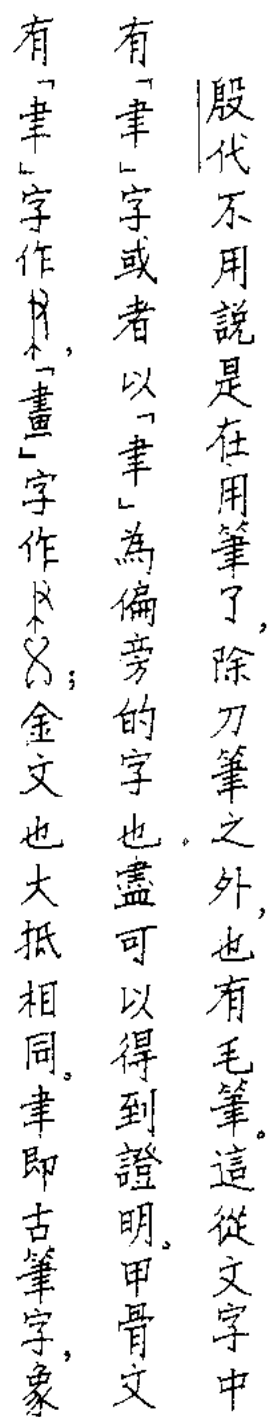 殷代不用說是在用筆了，除刀筆之外，也有毛筆。這從文字中
有「聿」字或者以「聿」為偏旁的字也。盡可以得到證明。甲骨文
有「聿」字作，「畫」字作；金文也大抵相同。聿即古筆字，象